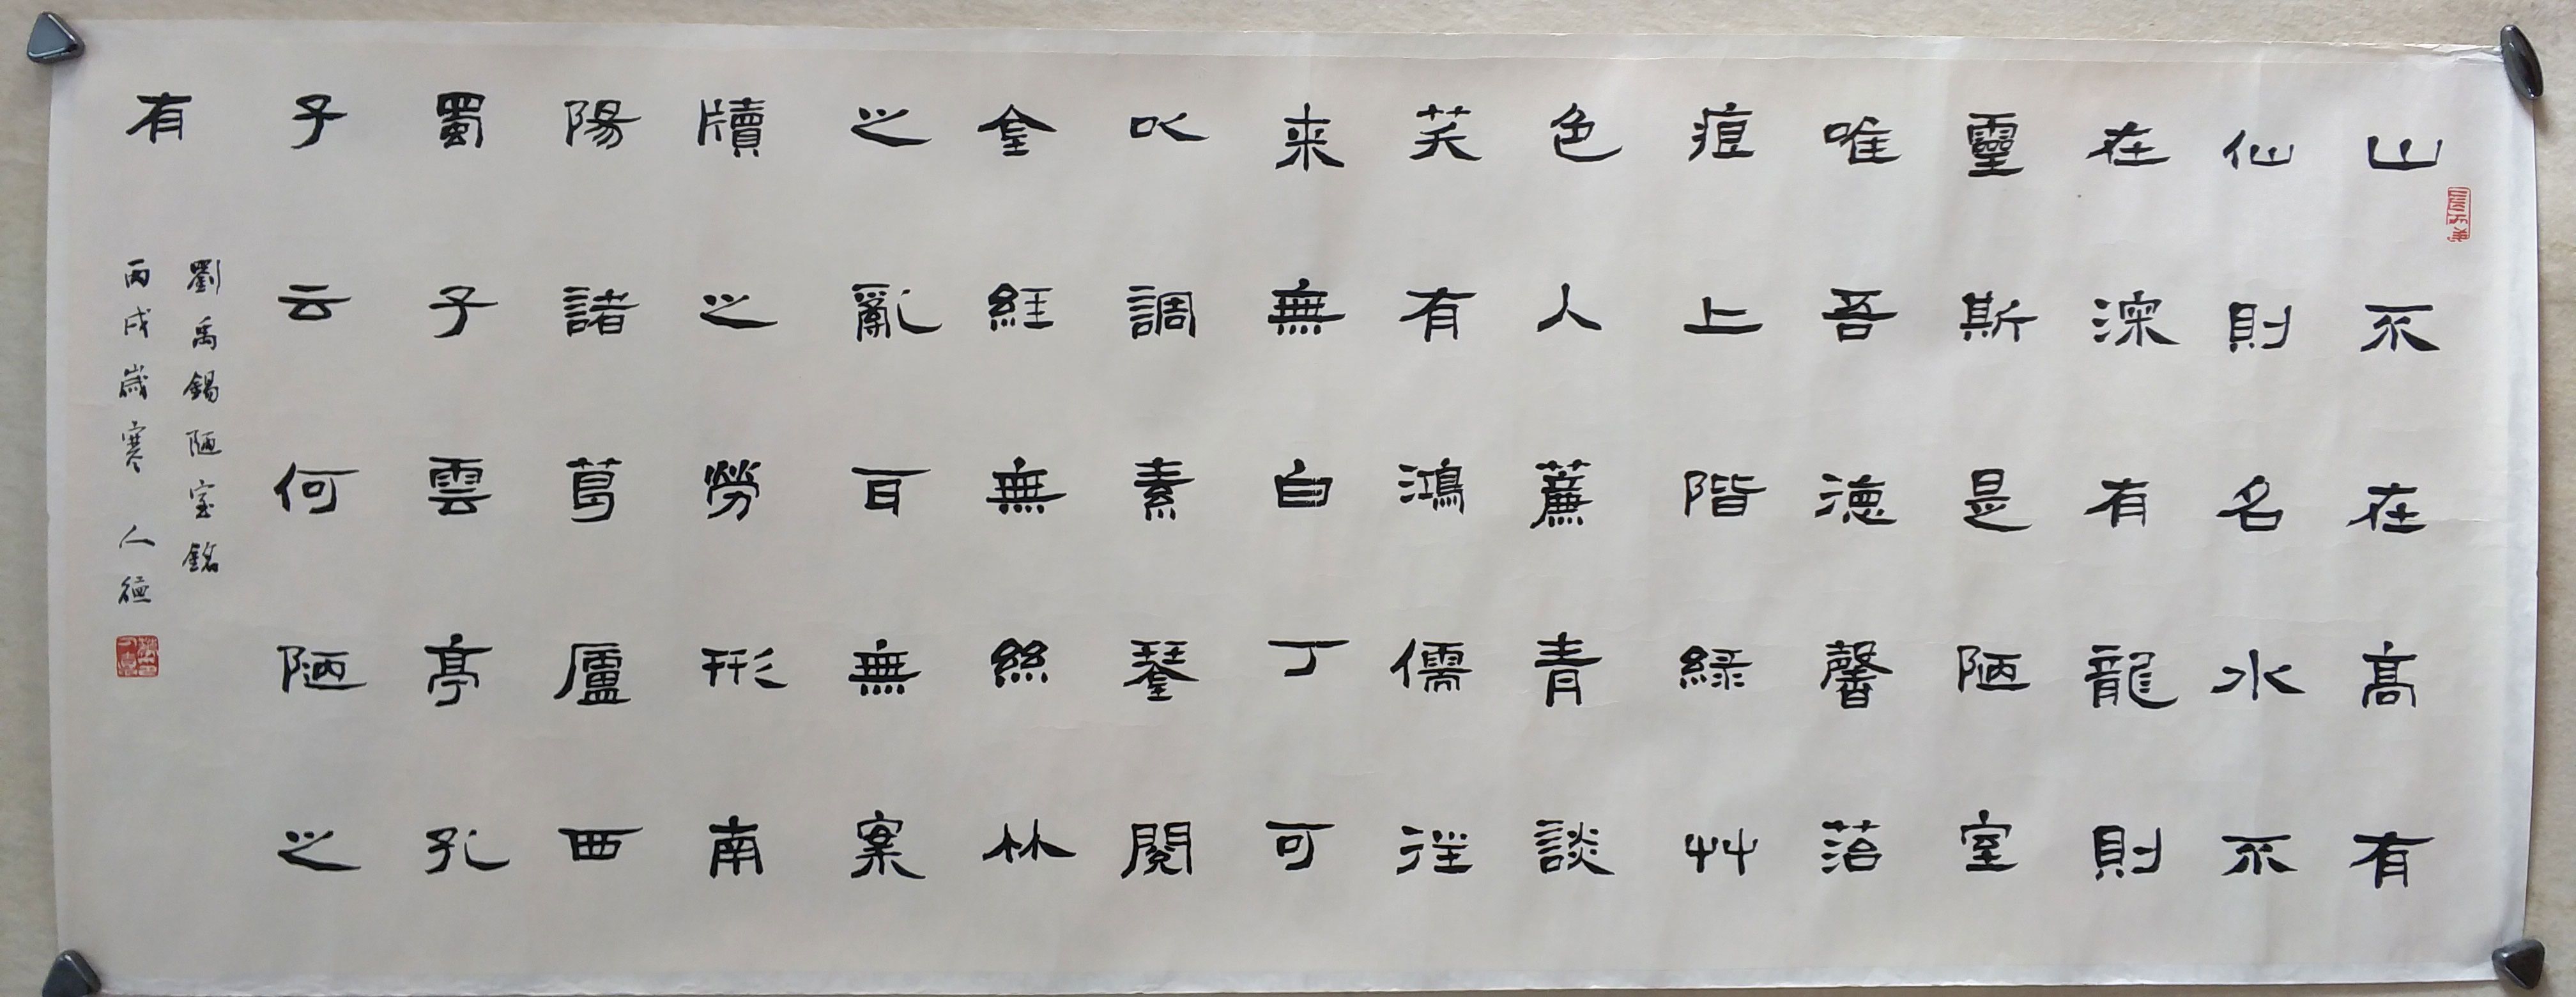 山不在高有
仙則名水不
在深有龍則
靈斯是陋室
唯吾德馨菭
痕上階綠艸
色入簾青談
笑有鴻儒往
来無白丁可
以調素琴閱
金經無絲竹
之亂耳無案
牘之勞形南
陽諸葛廬西
蜀子雲亭孔
子云何陋之
有
劉禹錫陋室銘
丙戌歲寒人德